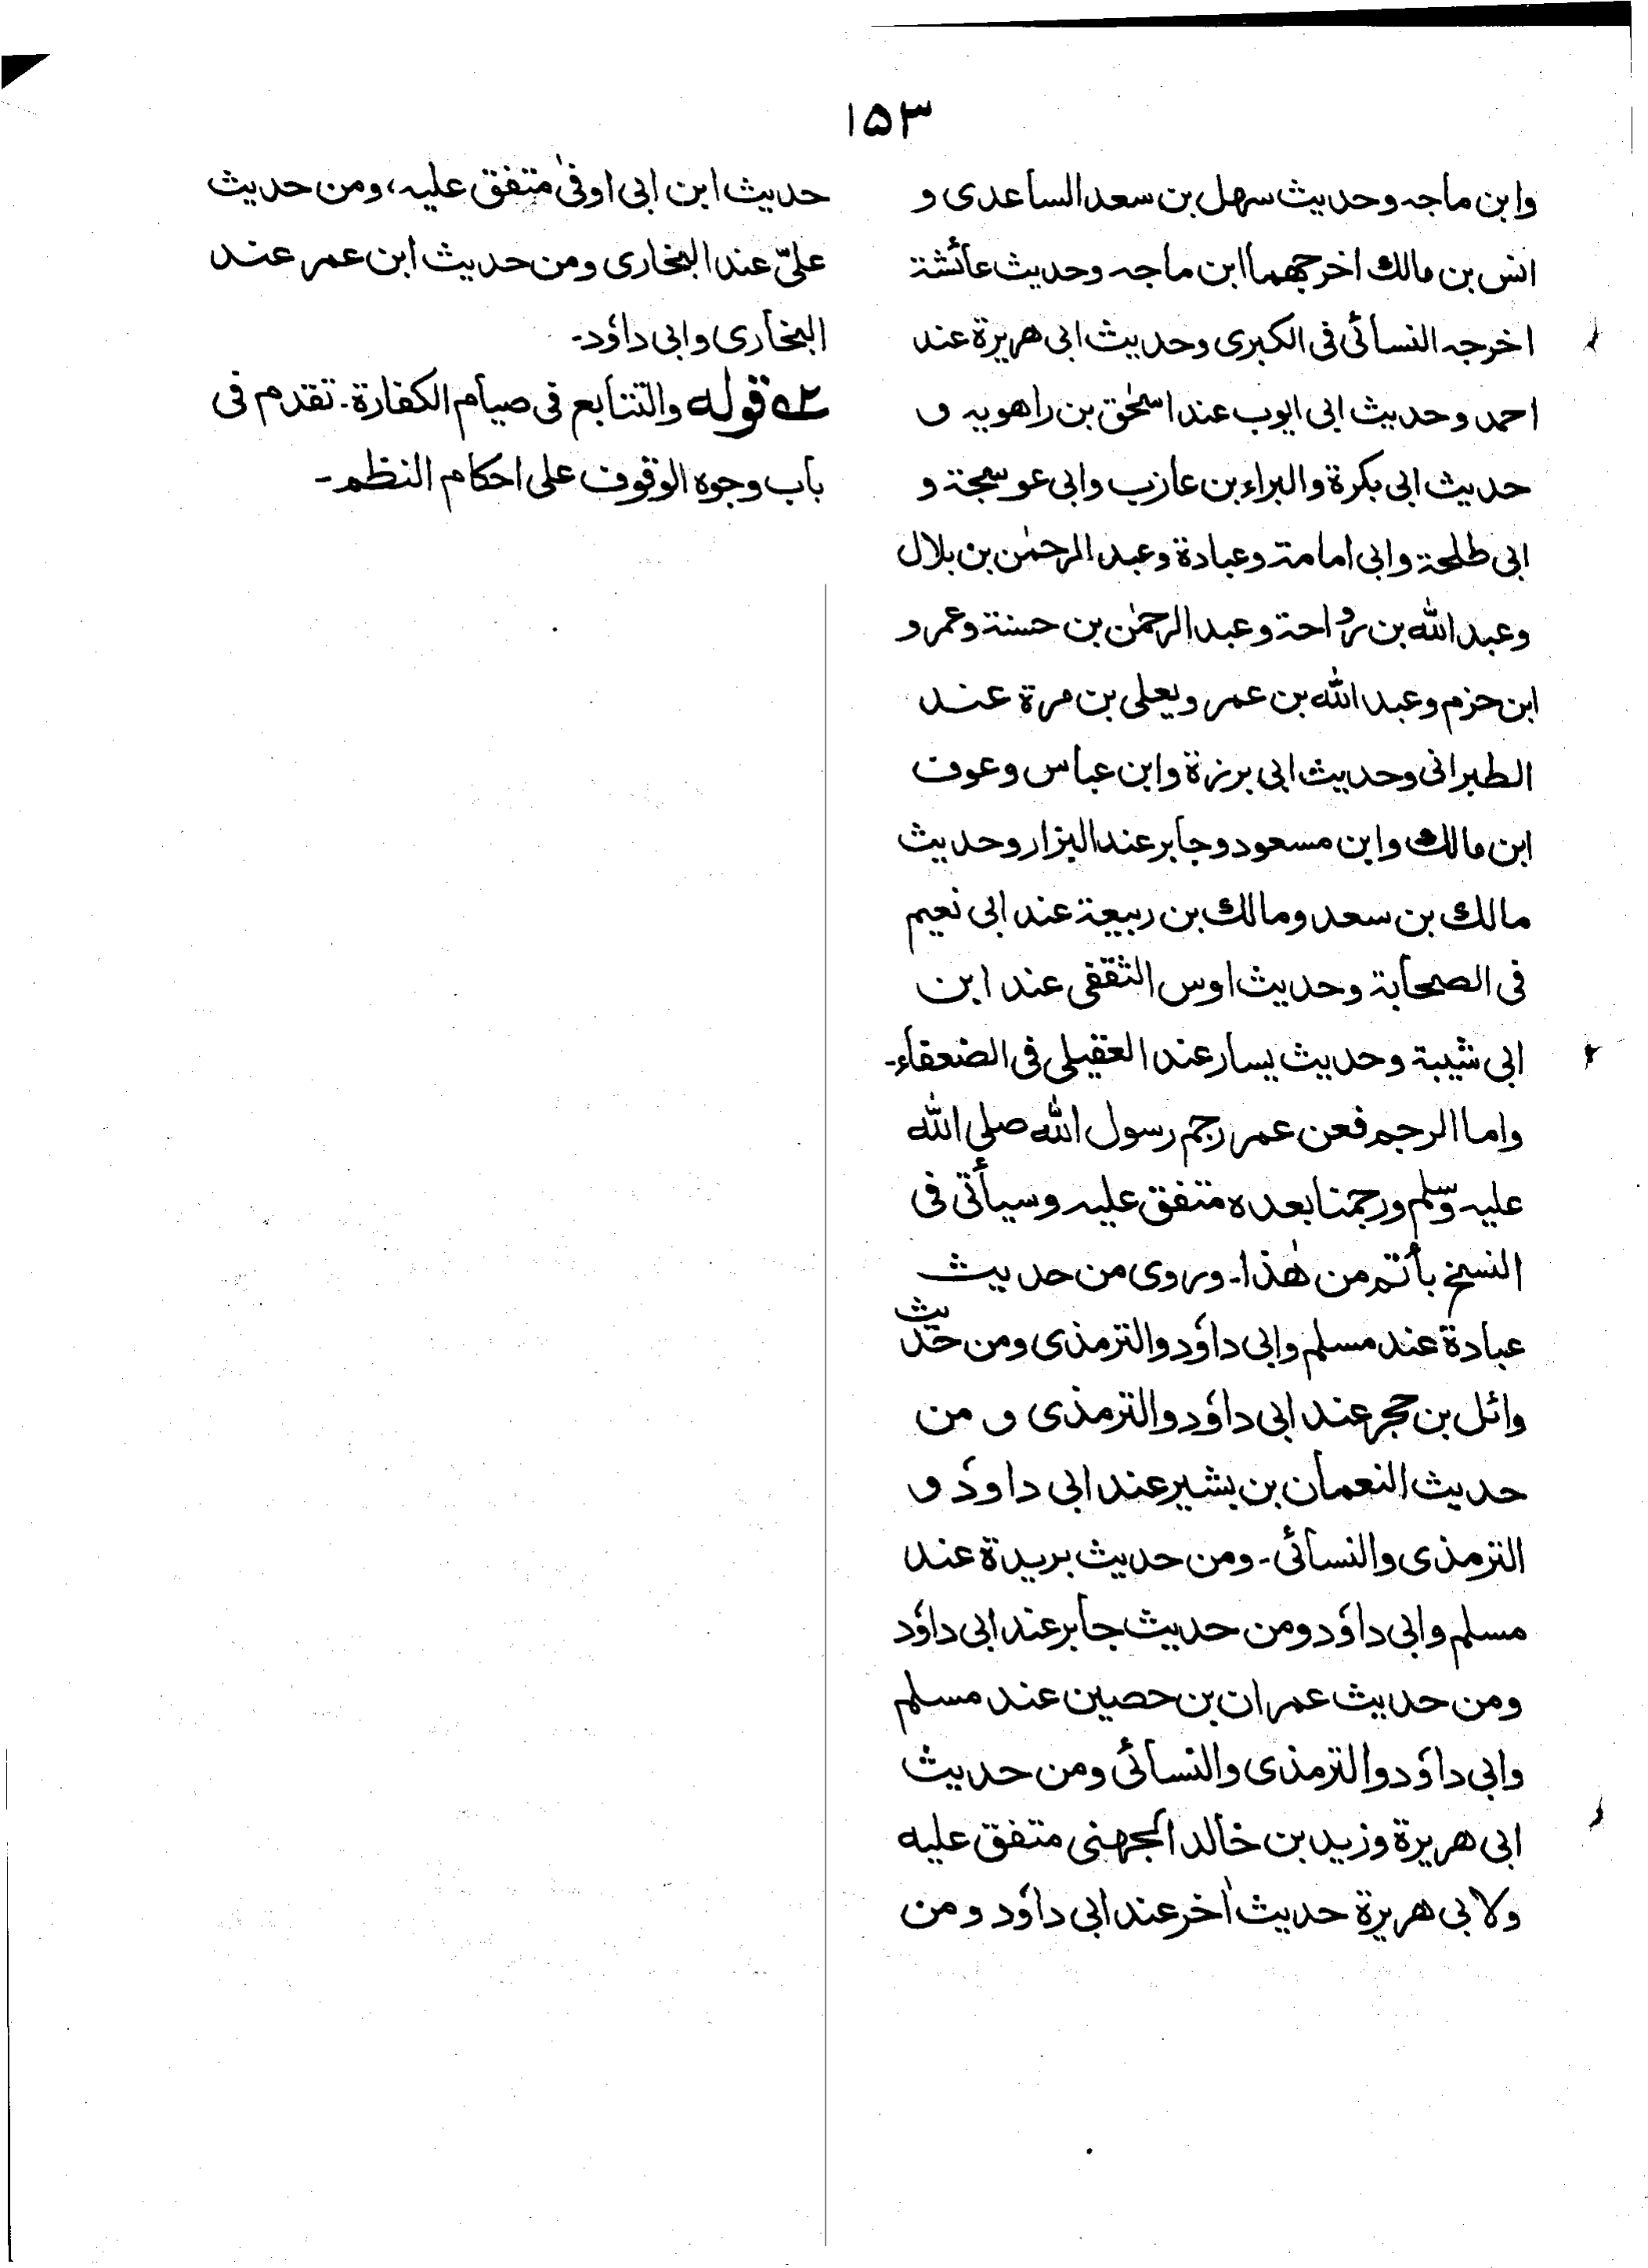 ۱۵۳
وابن ماجہ وحدیث سھل بن سعد الساعدی و
انس بن مالك اخرجھما ابن ماجہ وحدیث عائشة
اخرجہ النسائی فی الکبری وحدیث ابی ھریرة عند
احمد وحدیث ابی ایوب عند اسحٰق بن راھویہ و
حدیث ابی بکرة والبراء بن عازب وابی عوسجة و
ابی طلحة وابی امامة وعبادة وعبد الرحمٰن بن بلال
وعبد اللّٰه بن رواحة وعبد الرحمٰن بن حسنة وعمرو
ابن حزم وعبد اللّٰه بن عمر ویعلی بن مرة عند
الطبرانی وحدیث ابی برزة وابن عباس وعوف
ابن مالك وابن مسعود وجابر عند البزار وحدیث
مالك بن سعد ومالك بن ربیعة عند ابی نعیم
فی الصحابة وحدیث اوس الثقفی عند ابن
ابی شیبة وحدیث یسار عند العقیلی فی الضعفاء۔
واما الرجم فعن عمر رجم رسول اللّٰه صلی اللّٰه
علیہ وسلم ورجمنا بعدہ متفق علیہ وسیأتی فی
النسخ بأتم من ھٰذا۔ وروی من حدیث
عبادة عند مسلم وابی داؤد والترمذی ومن حدیث
وائل بن حجر عند ابی داؤد والترمذی و من
حدیث النعمان بن بشیر عند ابی داودؑ و
الترمذی والنسائی۔ ومن حدیث بریدة عند
مسلم وابی داؤد ومن حدیث جابر عند ابی داؤد
ومن حدیث عمران بن حصین عند مسلم
وابی داؤد والترمذی والنسائی ومن حدیث
ابی ھریرة وزید بن خالد الجھنی متفق علیه
ولابی ھریرة حدیث اٰخر عند ابی داؤد و من
حدیث ابن ابی اوفیٰ متفق علیہ، ومن حدیث
علیّ عند البخاری ومن حدیث ابن عمر عند
البخاری وابی داؤد۔
۲ے قوله والتتابع فی صیام الکفارة۔ تقدم فی
باب وجوہ الوقوف علی احکام النظم۔